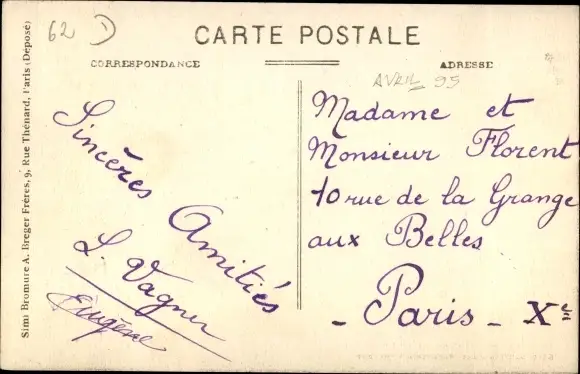 62 1)
CARTE POSTALE
CORRESPONDANCE
ADRESSE
AVRIL 95
Sincères
Amitiés
L. Vagner
Eugène
Madame et
Monsieur Florent
10 rue de la Grange
aux Belles
- Paris - Xe
Simi Bromure A. Breger Frères, 9, Rue Thénard, Paris (Déposé)